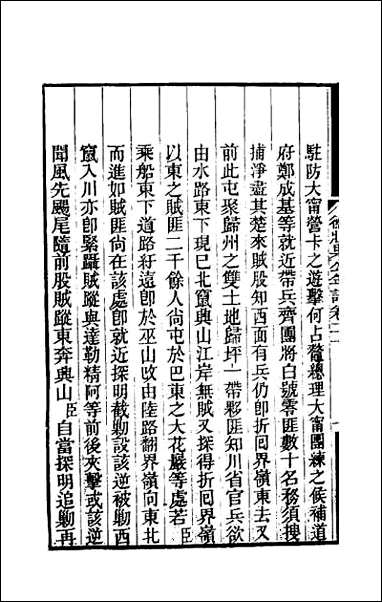 駐防大甯營卡之遊擊何占鰲總理大甯團練之候補道
府鄭成基等就近帶兵齊團將白號零匪數十名務須搜
捕淨盡其楚來賊股知西面有兵仍卽折囘界嶺東去又
前此屯聚歸州之雙土地歸坪一帶夥匪知川省官兵欲
由水路東下現已北竄興山江岸無賊又探得折囘界嶺
以東之賊匪二千餘人尙屯於巴東之大花巖等處若臣
乘船東下道路紆遠卽於巫山改由陸路翻界嶺向東北
而進如賊匪尙在該處卽就近探明截勦設該逆被勦西
竄入川亦卽緊躡賊蹤與達勒精阿等前後夾擊或該逆
聞風先颺尾隨前股賊蹤東奔興山臣自當探明追勦再